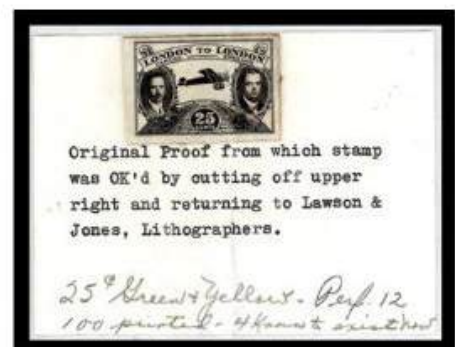 LONDON TO LONDON
25
Original Proof from which stamp
was OK'd by cutting off upper
right and returning to Lawson &
Jones, Lithographers.
25¢ Green & Yellow - Perf. 12
100 printed - 4 Known to exist now